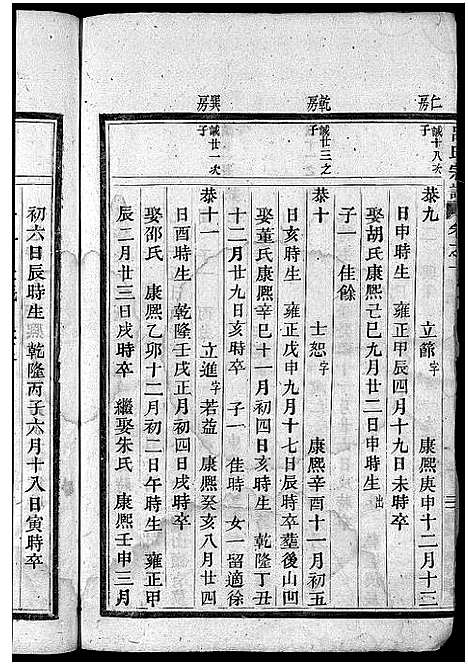 仁房
誠十八次子
恭九 立韸字 康熙庚申十二月十三
日申時生 雍正甲辰四月十九日未時卒
娶胡氏康熙己巳九月廿二日申時生 出
子一 佳餘
乾房
誠廿三之子
恭十 士恕字 康熙辛酉十一月初五
日亥時生 雍正戊申九月十七日辰時卒塟後山凹
娶董氏康熙辛巳十一月初四日亥時生 乾隆丁丑
十二月廿九日亥時卒 子一 佳時 女一留適徐
巽房
誠廿一次子
恭十一 立進字若益 康熙癸亥八月廿四
日酉時生 乾隆壬戌正月初四日戌時卒
娶邵氏 康熙乙卯十二月初二日午時生 雍正甲
辰二月廿三日戌時卒 繼娶朱氏 康熙壬申三月
初六日辰時生 乾隆丙子六月十八日寅時卒